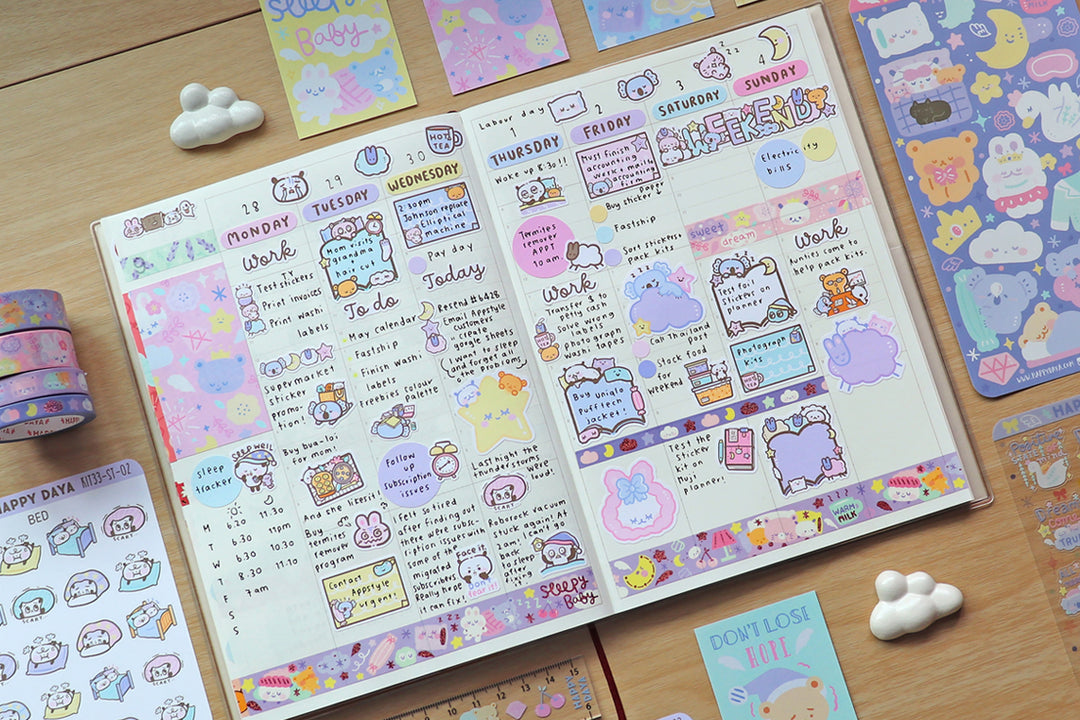 Sleepy
Baby
MILK
Labour day
HOT
TEA
28
29
30
1
2
3
4
MONDAY
TUESDAY
WEDNESDAY
THURSDAY
FRIDAY
SATURDAY
SUNDAY
WEEKEND
work
Test TV
stickers
Print invoices
Print washi
labels
Supermarket
sticker
promo-
tion!
Buy bua-loi
for mom!
And she likes it!
Buy
termites
remover
program
Contact
Appstyle
urgent!
Mom visits
grandma
+
hair cut
To do
May calendar
Fastship
Finish washi
labels
Treebies colour
palette
Follow
up
subscription
issues
I felt so tired
after finding out
there were subscr-
iption issues with
some of the
migrated
subscribers
Really hope
it can fix!
Face it
2:30pm
Johnson replace
Elliptical
machine
Pay day
Today
Resend #6428
Email Appstyle
customers
create
google sheets
I want to sleep
and forget all
the problems
Last night the
thunderstorms
were
loud!
SCART
Roborock vacuum
stuck again at
2am! I can't go
back
to sleep
after
Sleepy
Baby
Wake up 8:30!!
Termites
remover
APPT
10am.
Work
Transfer $ to
petty cash
Solve wrong
labels
photograph
washi tapes
Buy uniqlo
Pufftech
Jacket!
Must finish
accounting
work + mail to
accounting
firm
Buy sticker paper
Fastship
Sort stickers +
pack kits
Call Thailand
post
Stock food
for
weekend
Test the
sticker
kit on
Muji
planner!
sweet
dream
Test foil
stickers on
planner
Photograph
kits
HOT
TEA
Electricity
bills
Work
Aunties come to
help pack kits.
WARM
MILK
sleep
tracker
SLEEP WELL
M 6.20 11.30
T 6.30 11pm
W 6.30 10.30
T 8.30 11.10
F 7am
S
S
HAPPY DAYA KIT33-ST-02
BED
SCART
SCART
SCART
DON'T LOSE
HOPE
10 11 12 13 14 15